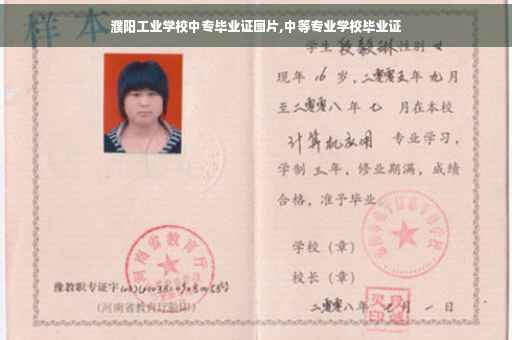 濮阳工业学校中专毕业证图片,中等专业学校毕业证
样本
学生 段毅琳 性别 女
现年 16 岁,二零零五年 九 月
至二零零八年 七 月在本校
计算机应用 专业学习,
学制 三 年,修业期满,成绩
合格,准予毕业
学校(章)
校长(章)
河南省教育厅
豫教职专证字
(河南省教育厅验印)
二零零八年 七 月 一 日